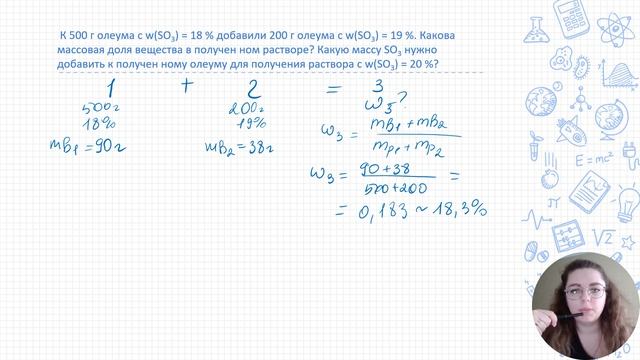 К 500 г олеума с w(SO₃) = 18 % добавили 200 г олеума с w(SO₃) = 19 %. Какова
массовая доля вещества в получен ном растворе? Какую массу SO₃ нужно
добавить к получен ному олеуму для получения раствора с w(SO₃) = 20 %?
1 + 2 = 3
500г 200г ω₃?
18% 19%
mв₁ = 90г mв₂ = 38г
ω₃ = mв₁ + mв₂ / mр₁ + mр₂
ω₃ = 90 + 38 / 500 + 200 =
= 0,183 ~ 18,3%
E=mc²
√2